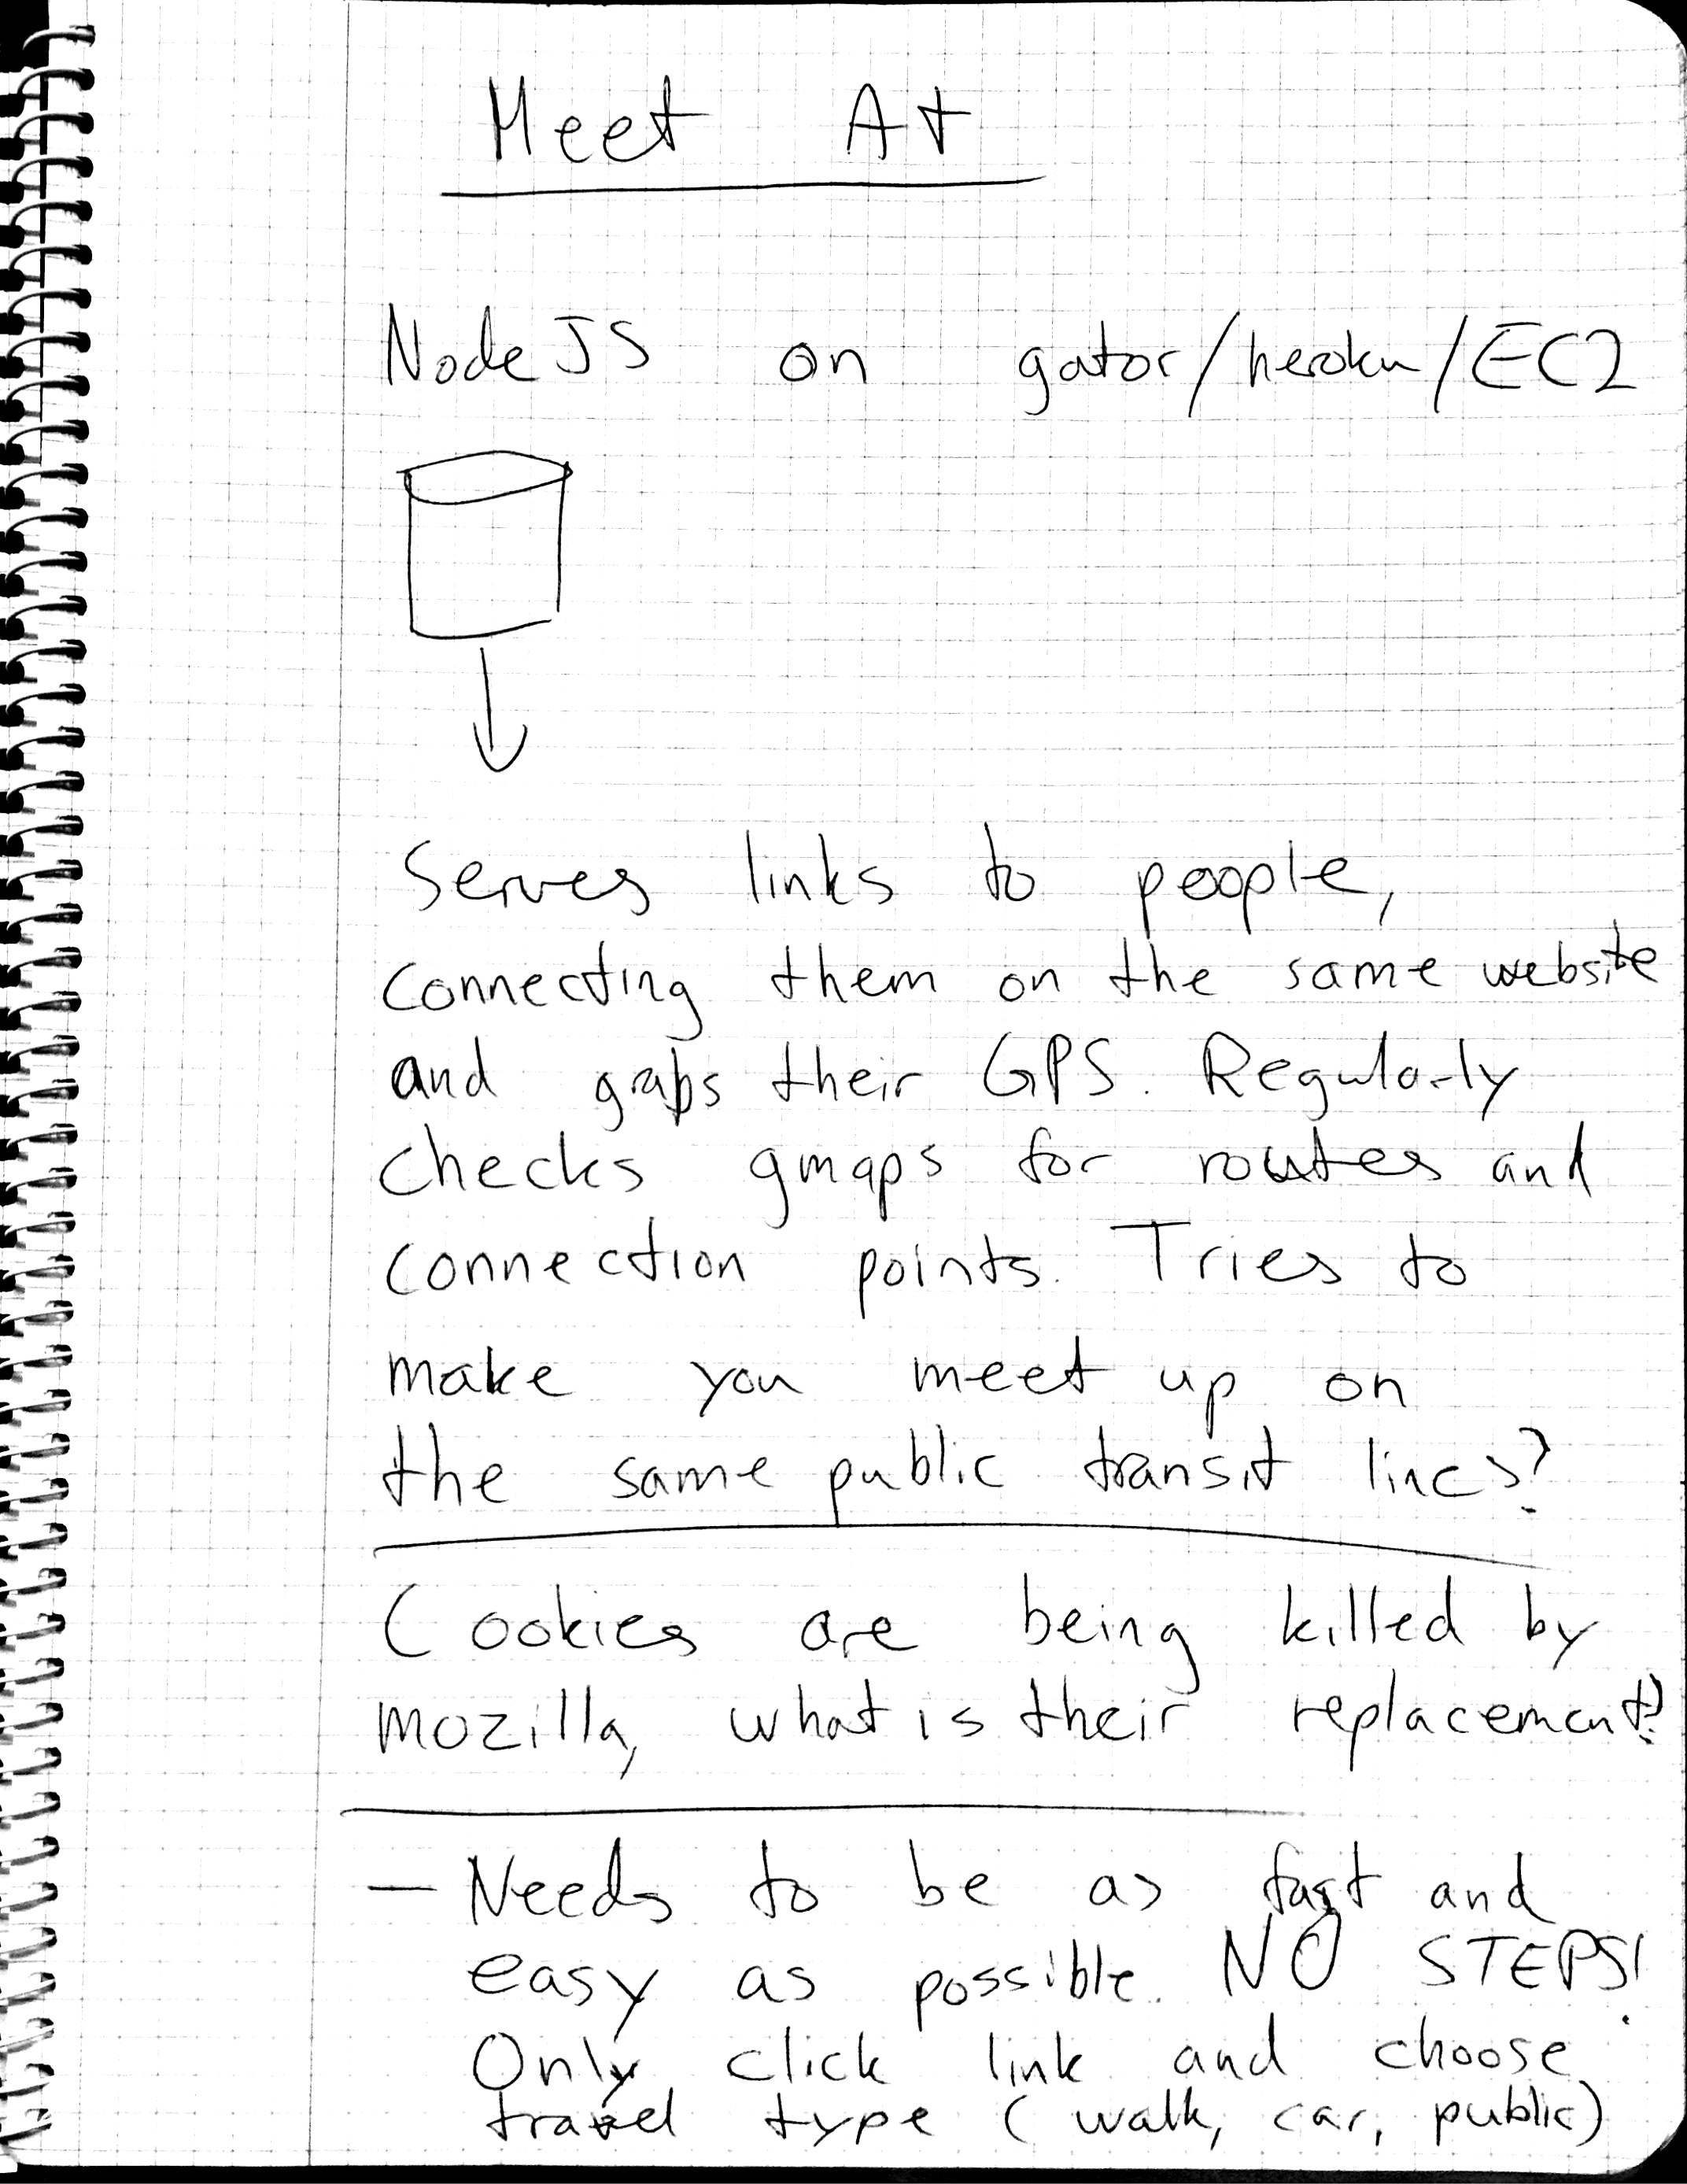 Meet At
NodeJS on gator/heroku/EC2
Serves links to people,
connecting them on the same website
and grabs their GPS. Regularly
checks gmaps for routes and
connection points. Tries to
make you meet up on
the same public transit lines?
Cookies are being killed by
mozilla, what is their replacement?
— Needs to be as fast and
easy as possible. NO STEPS!
Only click link and choose
travel type (walk, car, public)